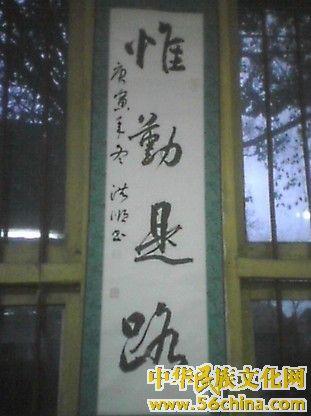 惟勤是路
庚寅年冬洪順书
中华民族文化网
www.56china.com